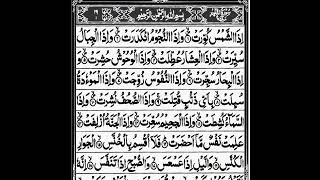 بِسْمِ اللهِ الرَّحْمٰنِ الرَّحِيْمِ
اِذَا الشَّمْسُ كُوِّرَتْ ۙ وَاِذَا النُّجُوْمُ انْكَدَرَتْ ۙ وَاِذَا الْجِبَالُ
سُيِّرَتْ ۙ وَاِذَا الْعِشَارُ عُطِّلَتْ ۙ وَاِذَا الْوُحُوْشُ حُشِرَتْ ۙ وَاِذَا
الْبِحَارُ سُجِّرَتْ ۙ وَاِذَا النُّفُوْسُ زُوِّجَتْ ۙ وَاِذَا الْمَوْءٗدَةُ
سُئِلَتْ ۙ بِاَيِّ ذَنْۢبٍ قُتِلَتْ ۚ وَاِذَا الصُّحُفُ نُشِرَتْ ۙ وَاِذَا
السَّمَآءُ كُشِطَتْ ۙ وَاِذَا الْجَحِيْمُ سُعِّرَتْ ۙ وَاِذَا الْجَنَّةُ اُزْلِفَتْ ۙ
عَلِمَتْ نَفْسٌ مَّآ اَحْضَرَتْ ۭ فَلَآ اُقْسِمُ بِالْخُنَّسِ ۙ الْجَوَارِ
الْكُنَّسِ ۙ وَالَّيْلِ اِذَا عَسْعَسَ ۙ وَالصُّبْحِ اِذَا تَنَفَّسَ ۙ اِنَّهٗ